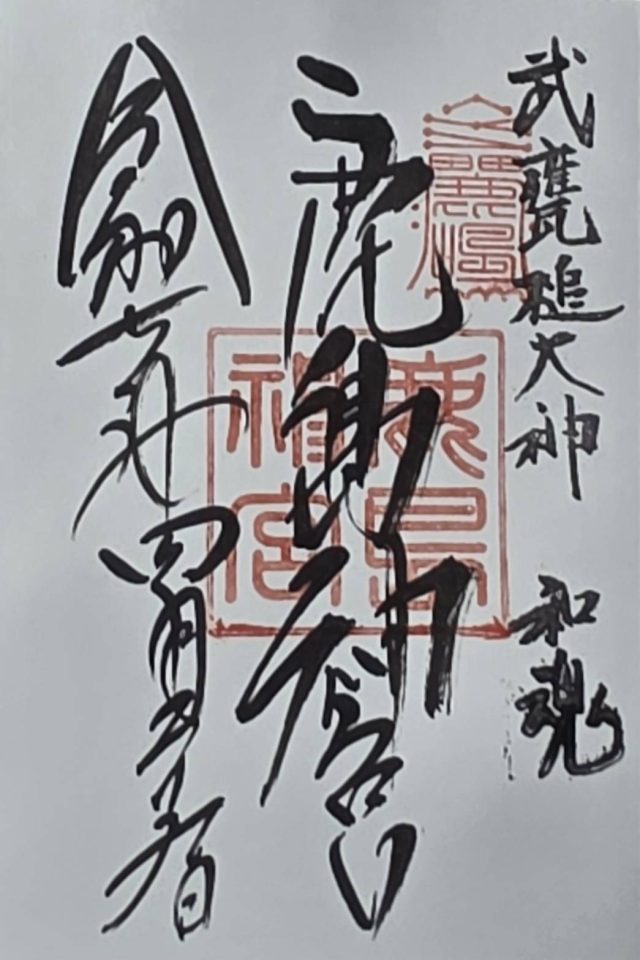 武甕槌大神 和魂
鹿島神宮
鹿島
神宮
令和七年四月日